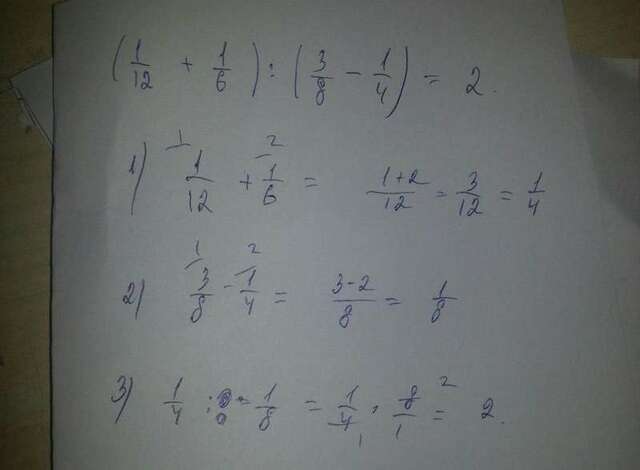 (1/12 + 1/6) : (3/8 - 1/4) = 2.
1) 1/12 + 1/6 = (1+2)/12 = 3/12 = 1/4
2) 3/8 - 1/4 = (3-2)/8 = 1/8
3) 1/4 : 1/8 = 1/4 · 8/1 = 2.